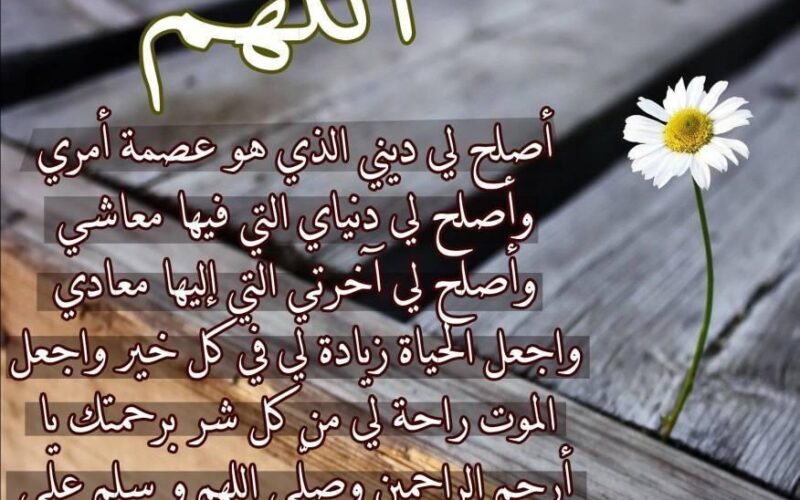 اللهم
أصلح لي ديني الذي هو عصمة أمري
وأصلح لي دنياي التي فيها معاشي
وأصلح لي آخرتي التي إليها معادي
واجعل الحياة زيادة لي في كل خير واجعل
الموت راحة لي من كل شر برحمتك يا
أرحم الراحمين وصلّي اللهم و سلم علّى